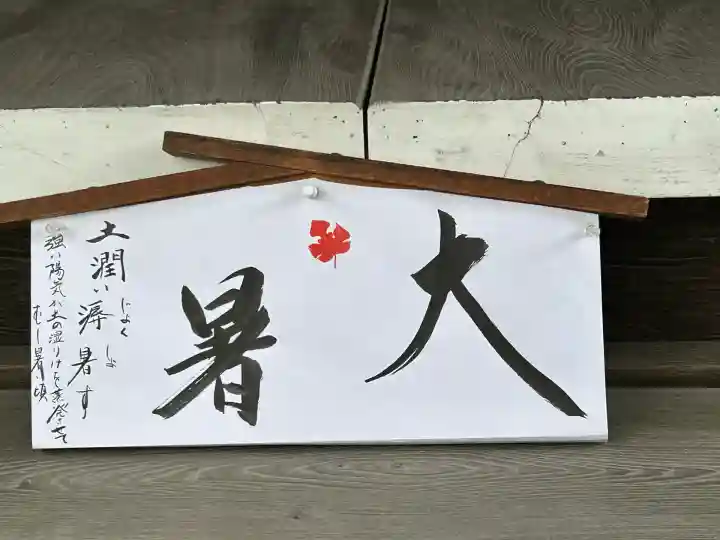 大暑
土潤い溽暑す
じょく しょ
強い陽気が土の湿りけを蒸発させて
むし暑い頃